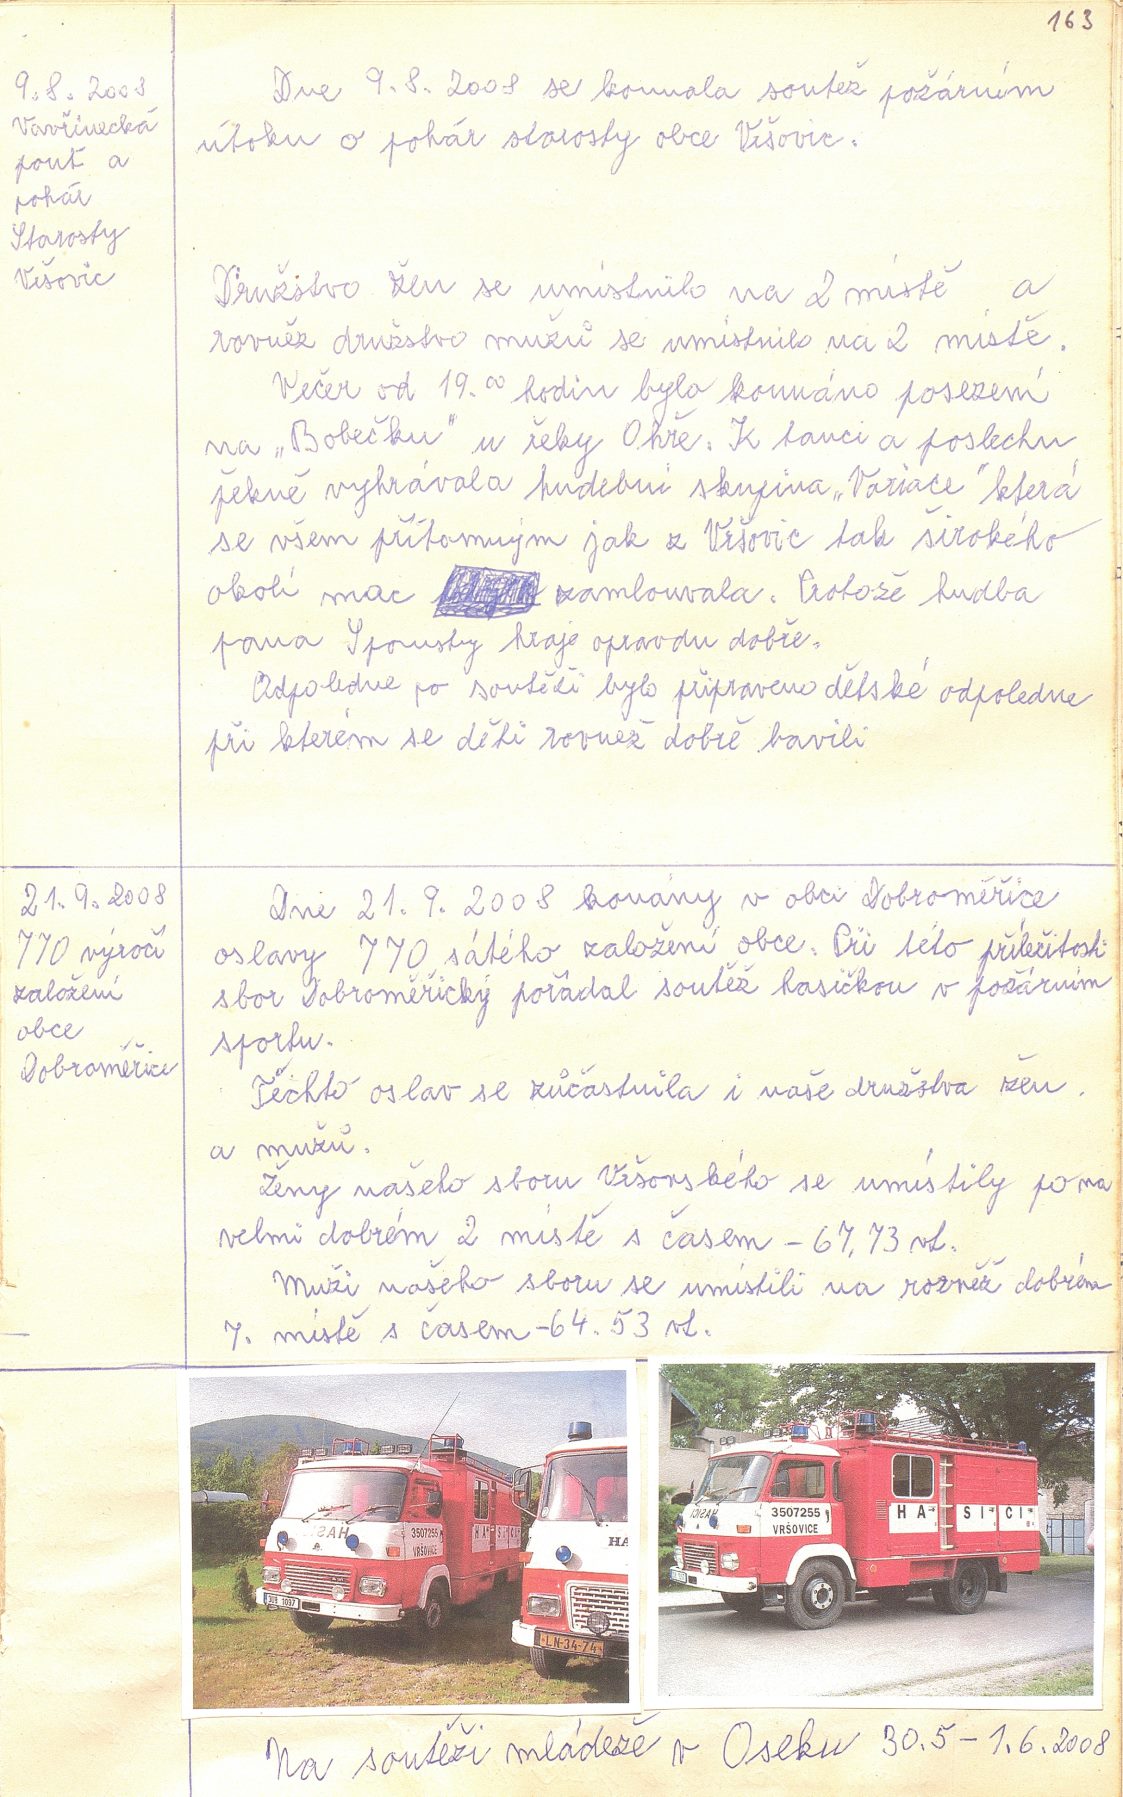 163
9.8.2008
Vavřinecká
pouť a
pohár
Starosty
Vršovic
Dne 9.8.2008 se konnala soutěž požárním
útoku o pohár starosty obce Vršovic.
Družstvo žen se umístnilo na 2 místě a
rovněž družstvo mužů se umístnilo na 2 místě.
Večer od 19.00 hodin bylo konnáno posezení
na „Bobečku" u řeky Ohře. K tanci a poslechu
pěkně vyhrávala hudební skupina „Variace" která
se všem přítomným jak z Vršovic tak širokého
okolí moc zamlouvala. Protože hudba
pana Spousty hraje opravdu dobře.
Odpoledne po soutěži bylo připraveno dětské odpoledne
při kterém se děti rovněž dobře bavili
21.9.2008
770 výročí
založení
obce
Dobroměřice
Dne 21.9.2008 konány v obci Dobroměřice
oslavy 770 sátého založení obce. Při této příležitosti
sbor Dobroměřický pořádal soutěž hasičkou v požárním
sportu.
Těchto oslav se zůčastnila i naše družstva žen.
a mužů.
Ženy našeho sboru Vršovského se umístily po na
velmi dobrém 2 místě s časem – 67,73 vt.
Muži našeho sboru se umístili na rovněž dobrém
7. místě s časem – 64.53 vt.
HASIČI
3507255
VRŠOVICE
HA SI ČI
3U8 1097
HA
LN-34-74
HASIČI
3507255
VRŠOVICE
HA SI ČI
Na soutěži mládeže v Oseku 30.5 – 1.6.2008